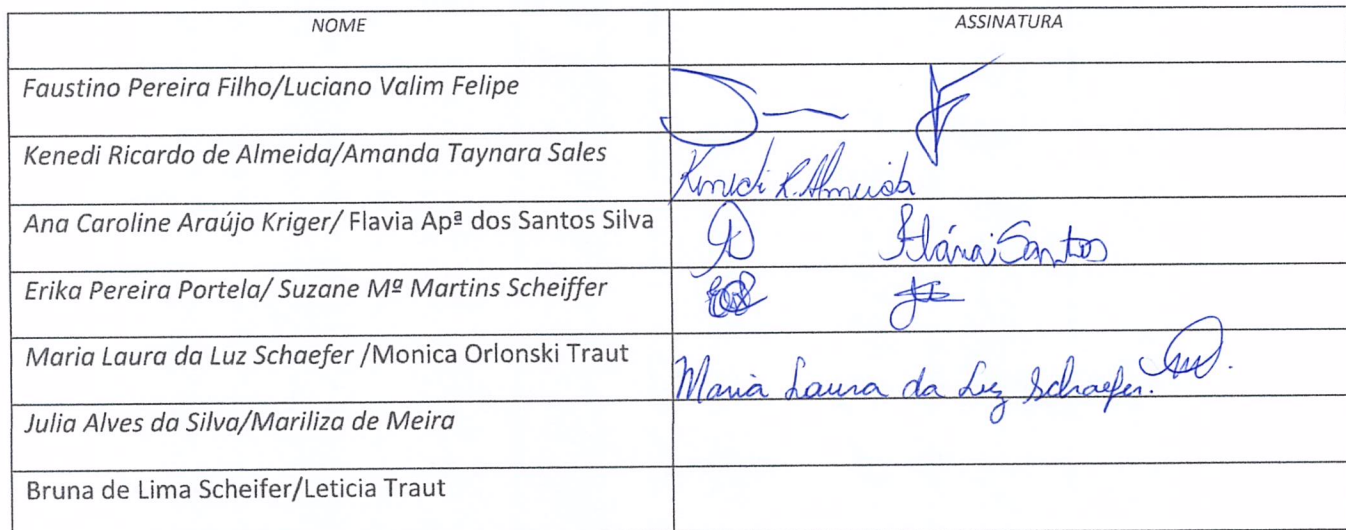 NOME ASSINATURA
Faustino Pereira Filho/Luciano Valim Felipe
Kenedi Ricardo de Almeida/Amanda Taynara Sales Kenedi R. Almeida
Ana Caroline Araújo Kriger/ Flavia Apª dos Santos Silva Flávia Santos
Erika Pereira Portela/ Suzane Mª Martins Scheiffer
Maria Laura da Luz Schaefer /Monica Orlonski Traut Maria Laura da Luz Schaefer.
Julia Alves da Silva/Mariliza de Meira
Bruna de Lima Scheifer/Leticia Traut